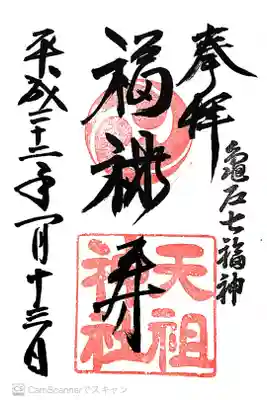 奉拝
龜戸七福神
福禄寿
天祖
神社
平成二十二年一月十三日
CS CamScannerでスキャン